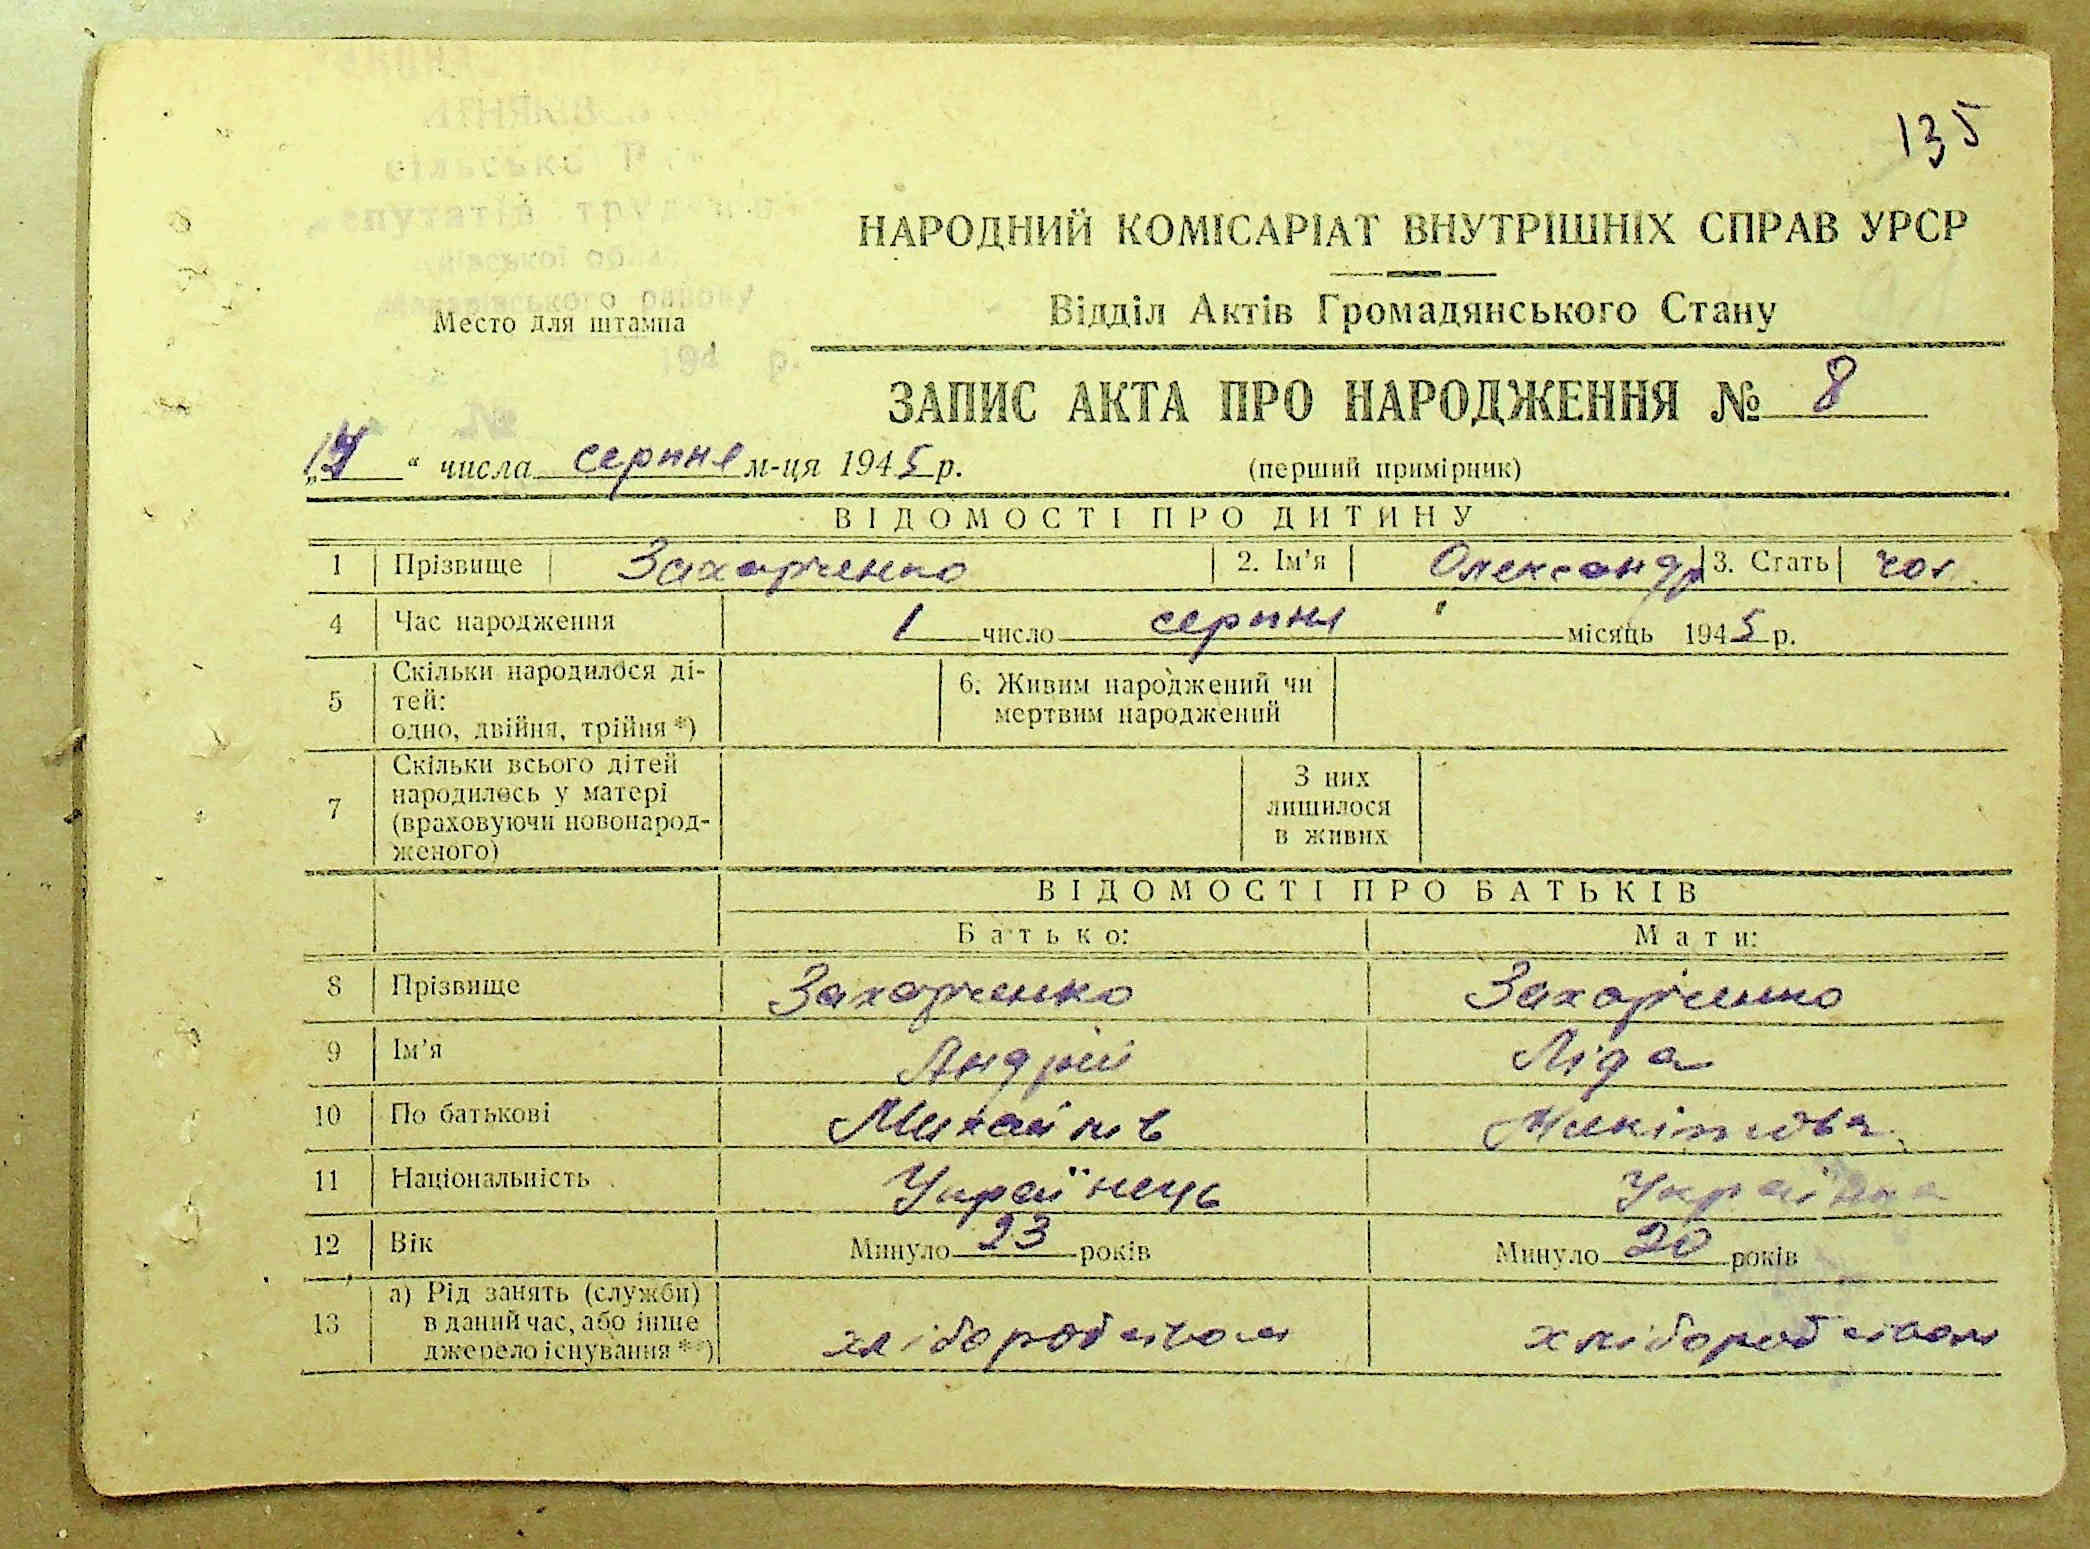 135
сільської
депутатів трудящих
Макарівського району
194 р.
№
НАРОДНИЙ КОМІСАРІАТ ВНУТРІШНІХ СПРАВ УРСР
Відділ Актів Громадянського Стану
Место для штампа
ЗАПИС АКТА ПРО НАРОДЖЕННЯ № 8
" числа серпня м-ця 1945 р.
(перший примірник)
ВІДОМОСТІ ПРО ДИТИНУ
1 Прізвище Захарченко 2. Ім'я Олександр 3. Стать чол.
4 Час народження 1 число серпня місяць 1945 р.
5 Скільки народилося ді-
тей:
одно, двійня, трійня *)
6. Живим народжений чи
мертвим народжений
7 Скільки всього дітей
народилось у матері
(враховуючи новонарод-
женого)
З них
лишилося
в живих
ВІДОМОСТІ ПРО БАТЬКІВ
Батько: Мати:
8 Прізвище Захарченко Захарченко
9 Ім'я Андрій Ліда
10 По батькові Михайлів Микітовна
11 Національність Українець Українка
12 Вік Минуло 23 років Минуло 20 років
13 а) Рід занять (служби)
в даний час, або інше
джерело існування **)
хліборобством хліборобством